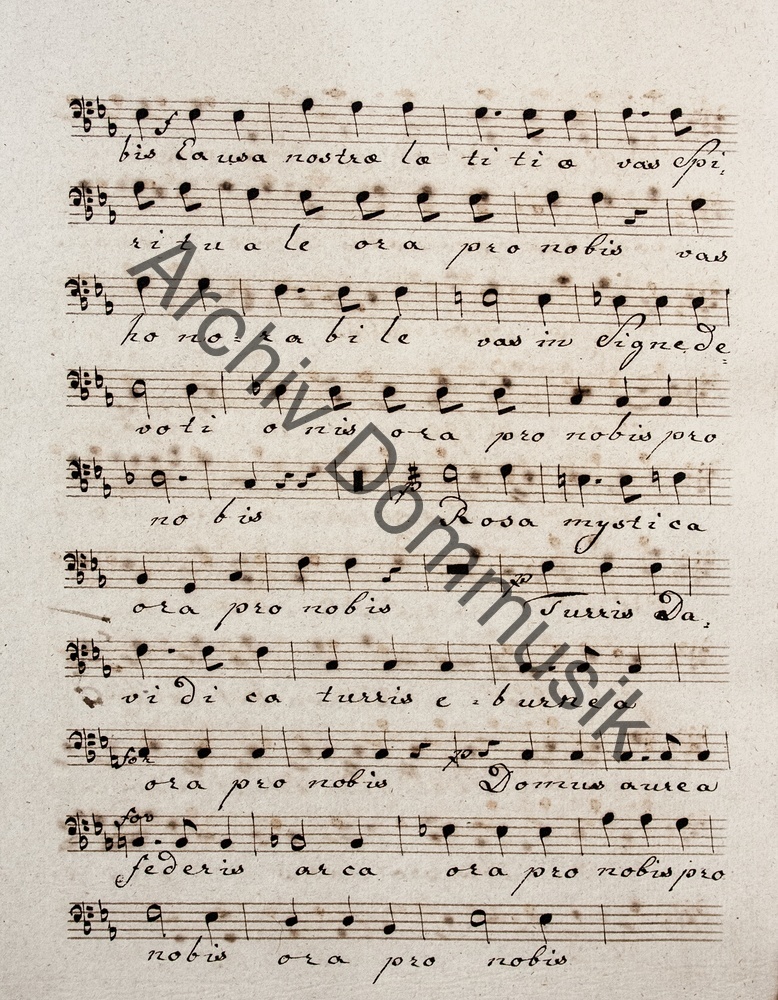 f
bis Causa nostræ læ titiæ vas Spi:
rituale ora pro nobis vas
ho no: rabile vas in Signe de:
voti onis ora pro nobis pro
nobis Rosa mystica
p
ora pro nobis Turris Da:
p
vidica turris e: burnea
for p
ora pro nobis Domus aurea
for
federis arca ora pro nobis pro
nobis ora pro nobis
Archiv Dommusik